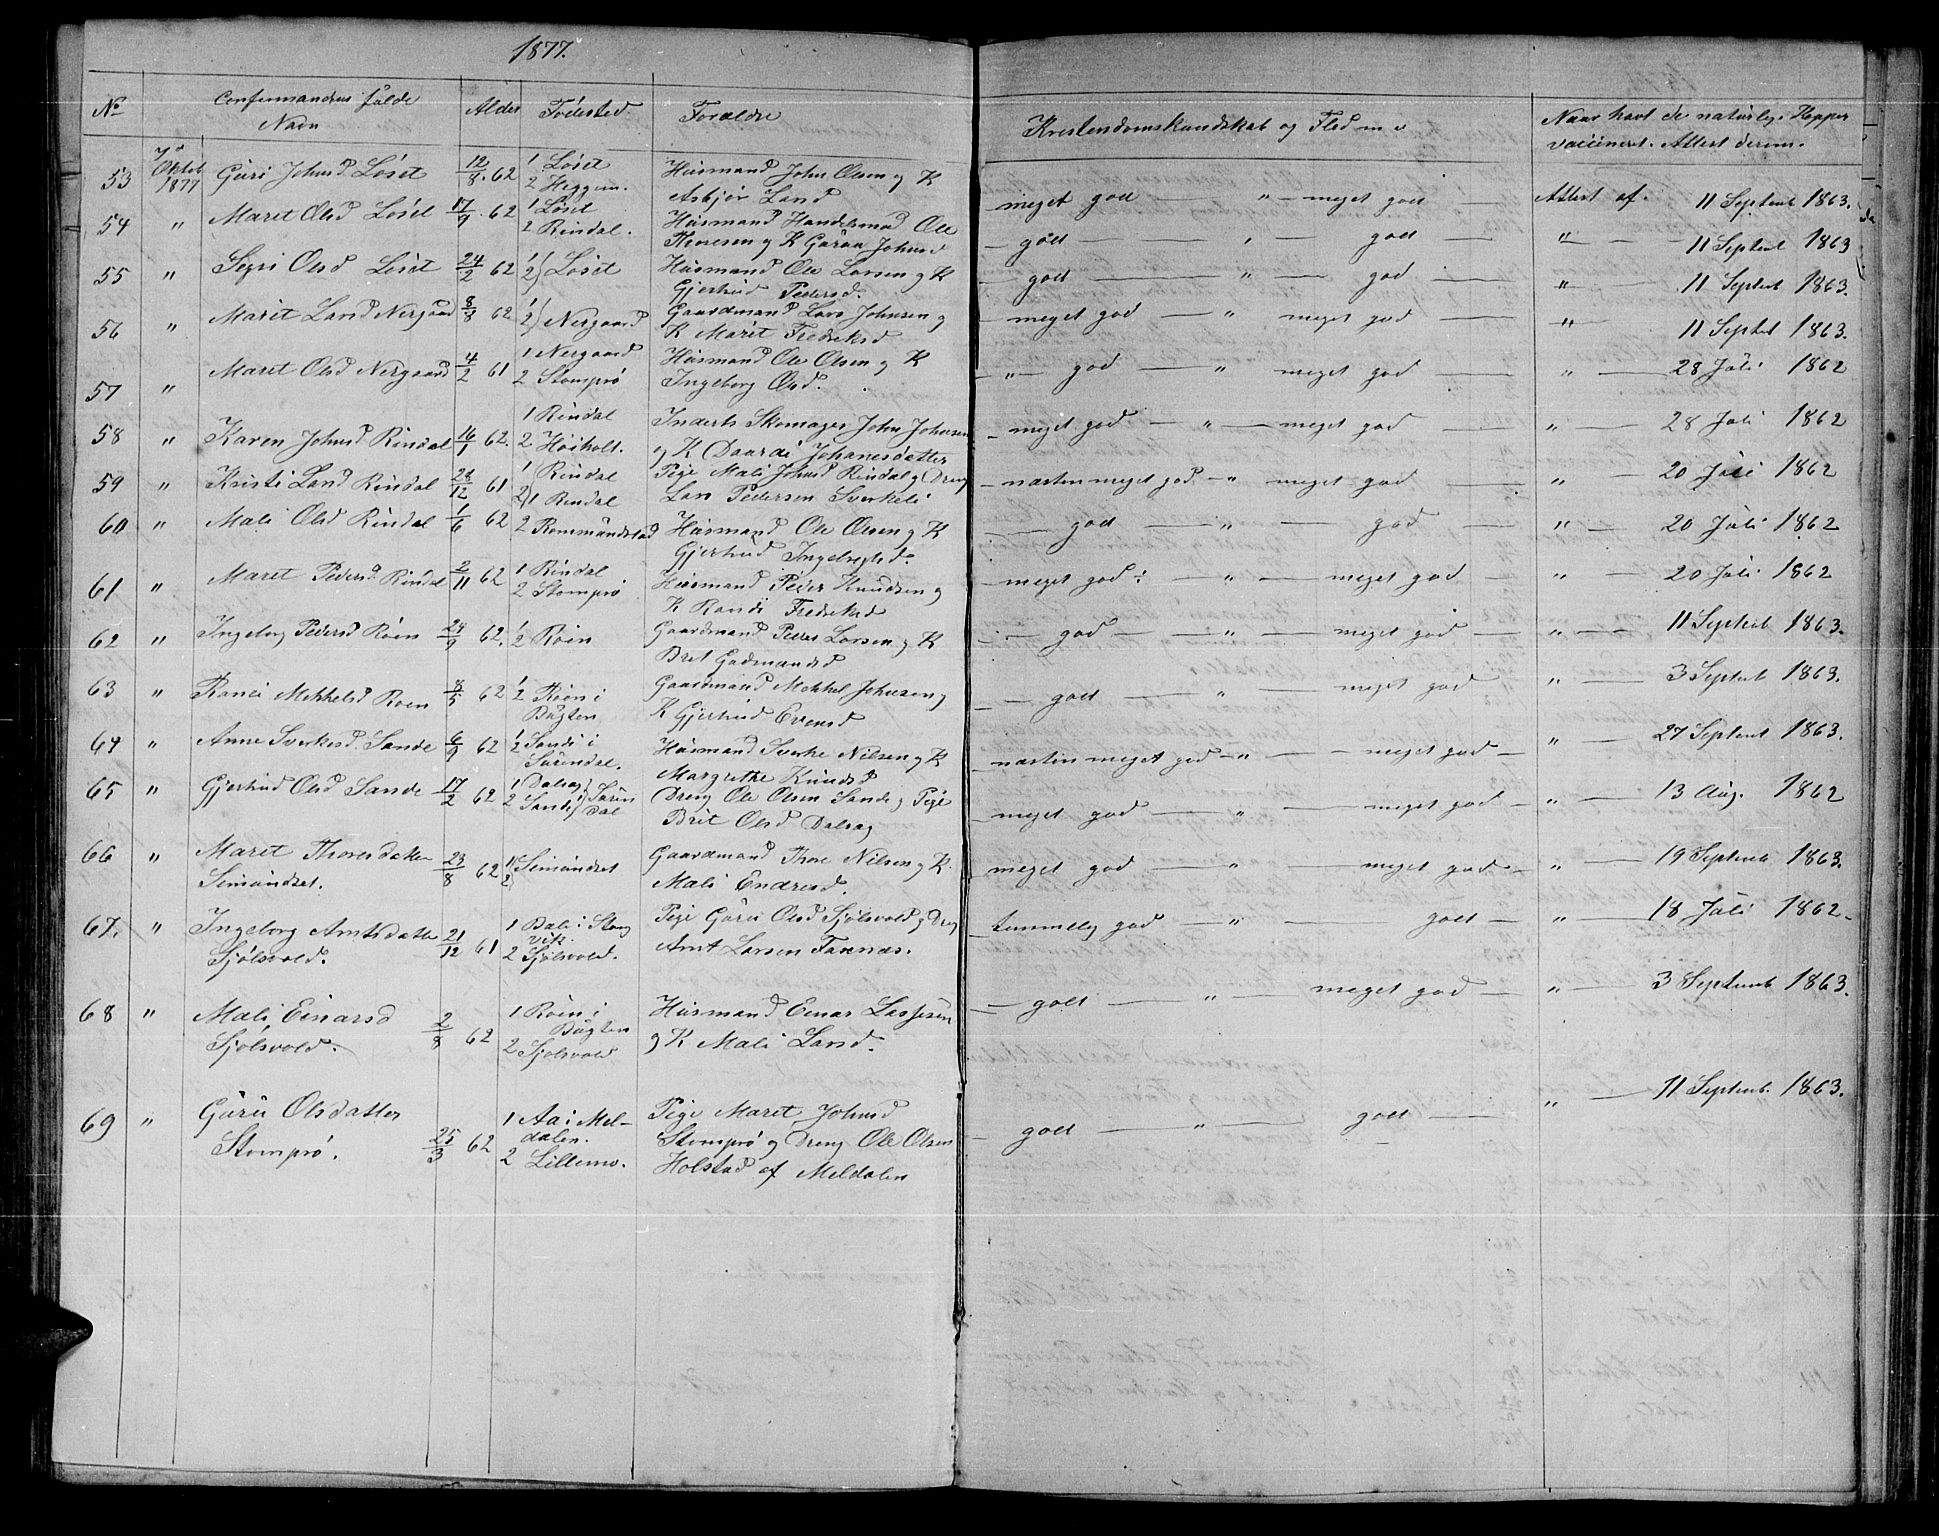 1877.
No Confirmandens fulde Navn Alder Födested Forældre Kristendomskundskab og Flid m v Naar havt de naturlig. Kopper vaccineret. Attest derom.
53 7de Oktob 1877 Guri Johnsd Löset 12/8. 62 1 Löset 2 Heggem. Husmand John Olsen og K Asbjör Larsd meget god " meget god Attest af. 11 Septemb 1863.
54 " Maret Olsd Löset 17/9. 62 1 Löset 2 Rindal. Husmand Handelsmd Ole Thoresen og K Guraa Johnsd godt " godt " 11 Septemb 1863
55 " Sigri Olsd Löset 24/2 62 1/2) Löset Husmand Ole Larsen og K Gjertrud Pedersd. godt " god " 11 Septemb 1863.
56 " Marit Larsd Nergaard 8/8 62 1/2) Nergaard Gaardmand Lars Johnsen og K Marit Fredriksd meget god " meget god " 11 Septbt 1863.
57 " Maret Olsd Nergaard 4/2 61 1 Nergaard 2 Stomprö Husmand Ole Olsen og K Ingeborg Olsd. " god " meget god " 28 Juli 1862
58 " Karen Johnsd Rindal 16/1 62. 1 Rindal 2. Höiholt. Inderst Skomager John Johnsen og K Daardi Johanesdatter meget god " meget god " 28 Juli 1862
59 " Kristi Larsd Rindal 28/12 61 1 Rindal 2) Rindal Pige Mali Johnsd Rindal og Dreng Lars Pedersen Sverkeli næsten meget god " meget god " 20 Juli 1862
60 " Mali Olsd Rindal 1/6 62 1 2 Rommundstad Husmand Ole Olsen og K Gjertrud Ingebrigtsd. godt " godt " 20 Juli 1862
61 " Maret Pedersd. Rindal 2/11 62 1 Rindal 2 Stomprö Husmand Peder Knudsen og K Randi Fredriksd meget god " meget god " 20 Juli 1862
62 " Ingeborg Pedersd Röen 24/9 62. 1/2 Röen Gaardmand Peder Larsen og K Brit Gudmundsd god " meget god " 11 Septemb 1863.
63 " Randi Mekkelsd Roen 8/5 62 1/2 Röen i Bögten Gaardmand Mekkel Johnsen og K Gjertrud Evensd godt " meget god " 3 Septemb 1863.
64 " Anne Sverkesd. Sande 6/9 62 1/2 Sande i Surendal. Husmand Sverke Nilsen og K Margrethe Knudsd næsten meget god " meget god " 27 Septemb 1863.
65 " Gjertrud Olsd Sande 17/2 62 1 Dalsag 2 Sande) Suren dal Dreng Ole Olsen Sande og Pige Brit Olsd Dalsag meget god " meget god " 13 Aug. 1862
66 " Maret Thoresdatter Simundset. 23/8 62 1/2) Simundset Gaardmand Thore Nilsen og K. Mali Endresd. meget god " meget god " 19 Septemb 1863.
67. " Ingeborg Arntsdatter Sjölsvold. 21/12 61 1 Bale i Stangvik. 2 Sjölsvold. Pige Guru Olsd Sjölsvold og Dreng Arnt Larsen Faxnæs. temmelig god " godt " 18 Juli 1862
68 " Mali Einarsd Sjölsvold. 2/8 62 1 Röen i Bögten 2 Sjolsvold Husmand Einar Lassesen og K Mali Larsd. godt " meget god " 3 Septemb 1863.
69 " Guru Olsdatter Stomprö. 25/3 62 1 Aa i Meldalen. 2 Lillemo. Pige Maret Johnsd Stomprö og Dreng Ole Olsen Holstad af Meldalen godt " godt " 11 Septemb. 1863.